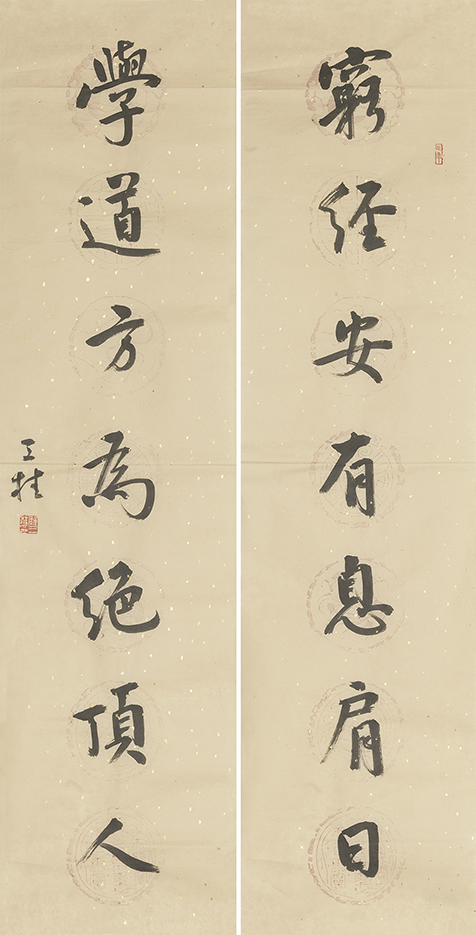 窮經安有息肩日
學道方為絕頂人